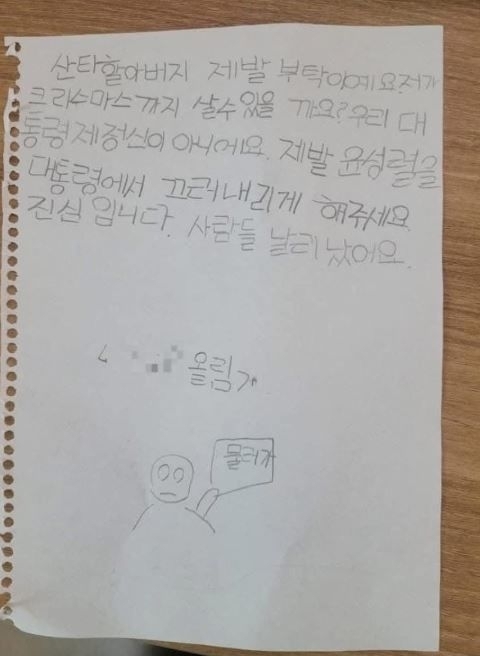 산타할아버지 제발 부탁이예요. 저가
크리스마스까지 살수 있을 까요? 우리 대
통령제정신이 아니에요. 제발 윤성렬을
대통령에서 끄러내리게 해주세요.
진심 입니다. 사람들 날리 났어요.
올림
물러가